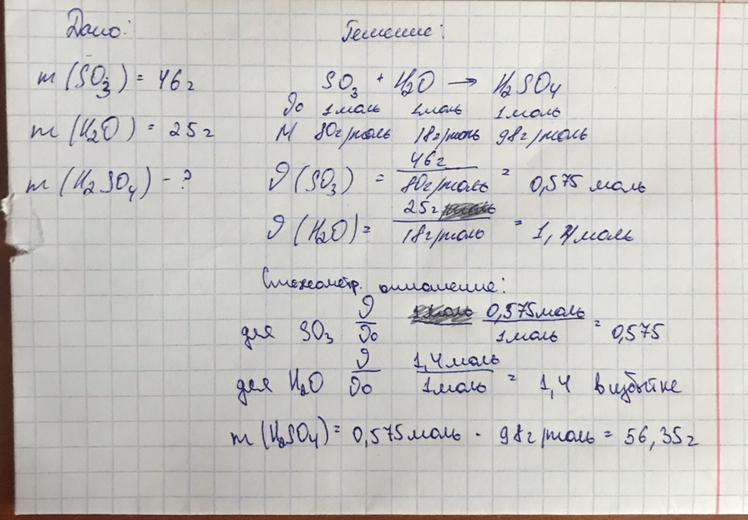 Дано:
Решение:
m (SO3) = 46г
SO3 + H2O → H2SO4
ϑo 1моль 1моль 1моль
m (H2O) = 25г
M 80г/моль 18г/моль 98г/моль
m (H2SO4) - ?
ϑ (SO3) = 46г / 80г/моль = 0,575 моль
ϑ (H2O) = 25г / 18г/моль = 1,4моль
Стехеометр. отношение:
для SO3 ϑ/ϑo 0,575моль / 1моль = 0,575
для H2O ϑ/ϑo 1,4моль / 1моль = 1,4 в избытке
m (H2SO4) = 0,575моль · 98г/моль = 56,35г